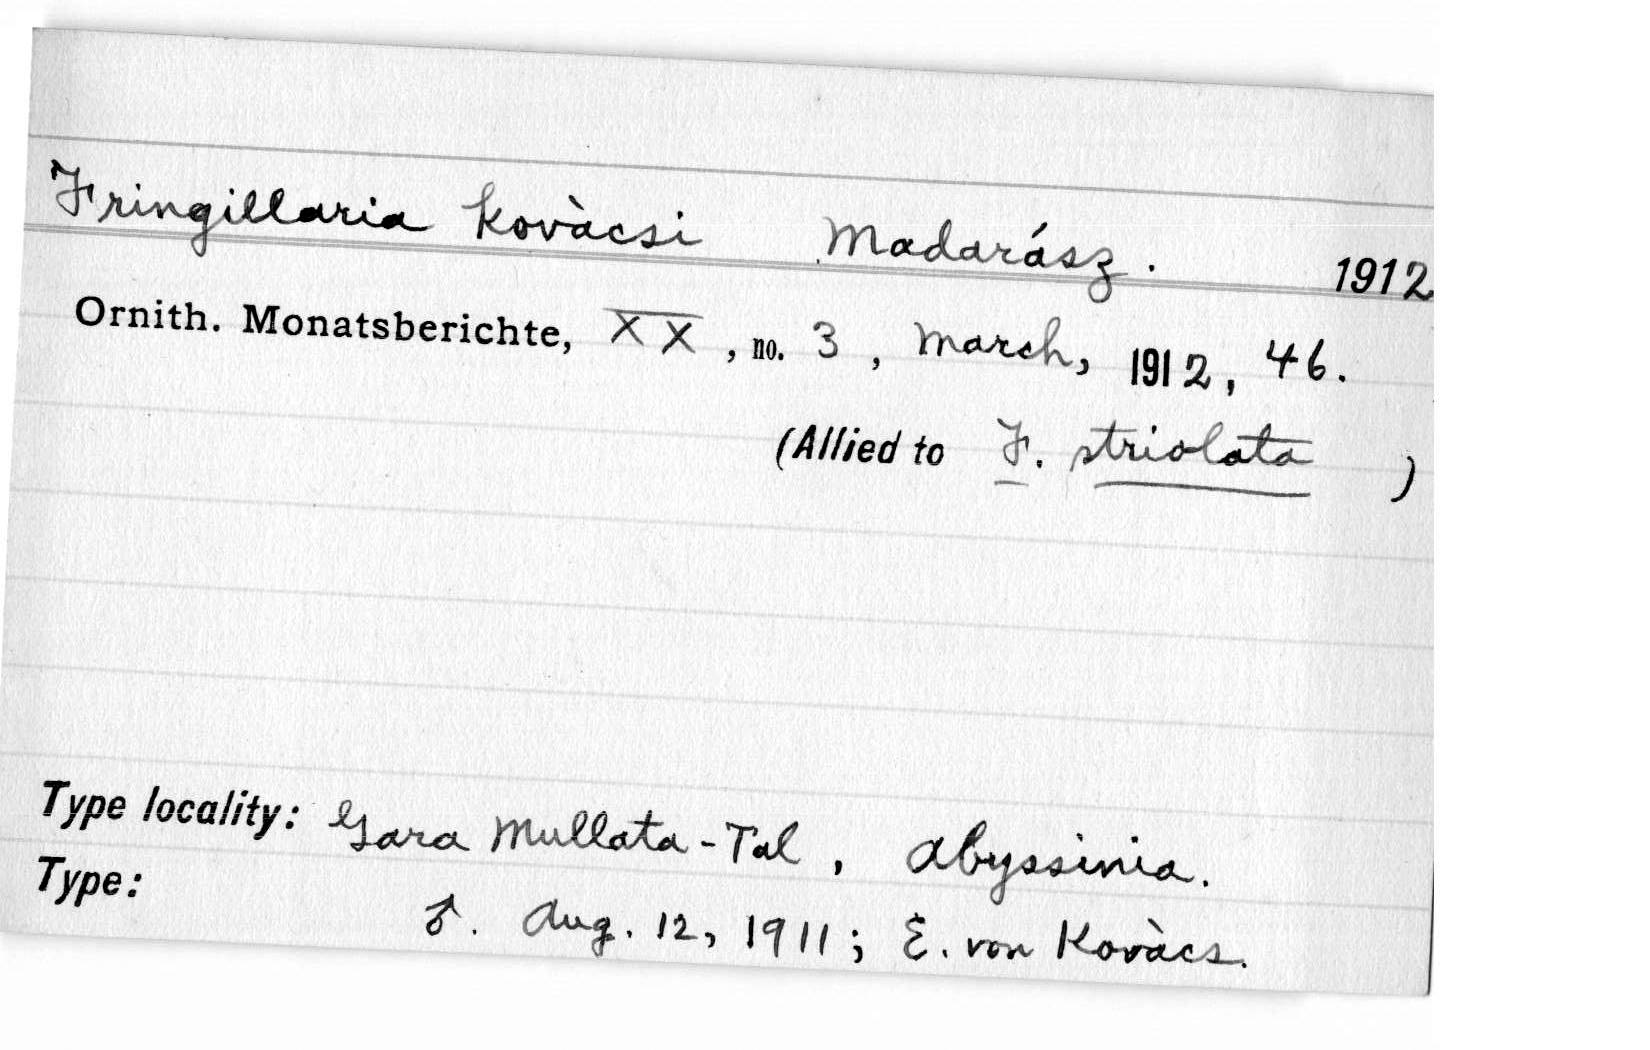 Fringillaria kovàcsi Madarász. 1912
Ornith. Monatsberichte, XX, no. 3, March, 1912, 46.
(Allied to F. striolata )
Type locality: Gara Mullata-Tal, Abyssinia.
Type: ♂. Aug. 12, 1911; E. von Kovàcs.